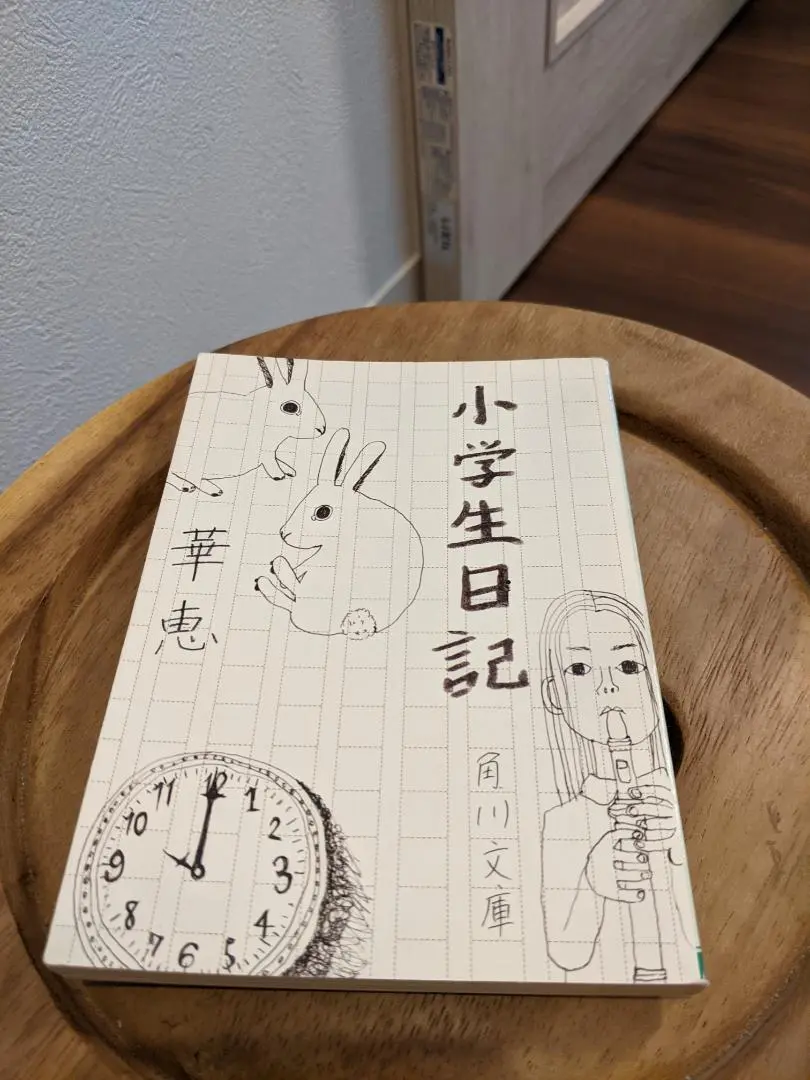 小学生日記
華恵
角川文庫
12
1
2
3
4
5
6
7
8
9
10
11